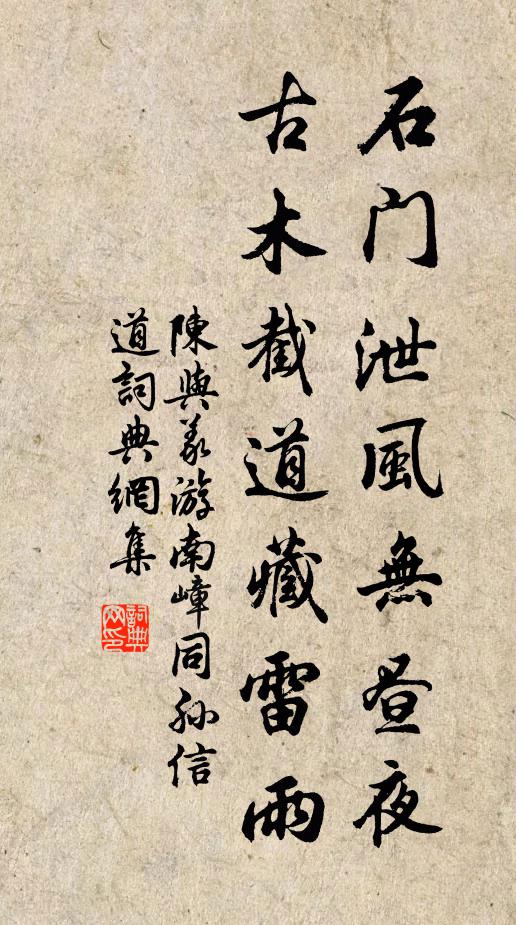 石门泄風無昼夜
古木截道藏雷雨
陳與義游南嶂同孙信
道詞典網集
詞典网印